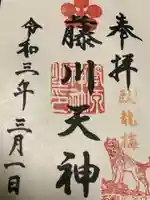 奉拝
臥龍梅
藤川天神
令和三年三月一日